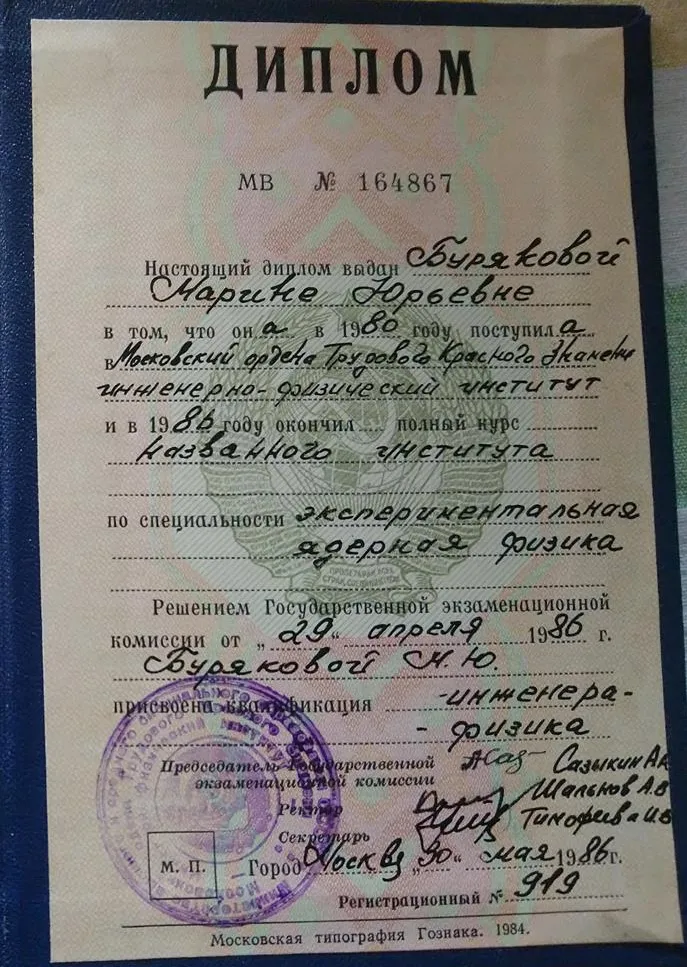 ДИПЛОМ
МВ № 164867
Настоящий диплом выдан Буряковой
Марине Юрьевне
в том, что она в 1980 году поступила
в Московский ордена Трудового Красного Знамени
инженерно-физический институт
и в 1986 году окончил полный курс
названного института
по специальности экспериментальная
ядерная физика
ПРОЛЕТАРИИ ВСЕХ
СТРАН, СОЕДИНЯЙТЕСЬ!
Решением Государственной экзаменационной
комиссии от „29“ апреля 1986 г.
Буряковой М.Ю.
присвоена квалификация -инженера-
- физика
Председатель Государственной Сазыкин А.А.
экзаменационной комиссии
Ректор Шальнов А.В
Секретарь Тимофеева И.В.
М. П. Город Москва „30“ мая 1986г.
Регистрационный № 919
Московская типография Гознака. 1984.